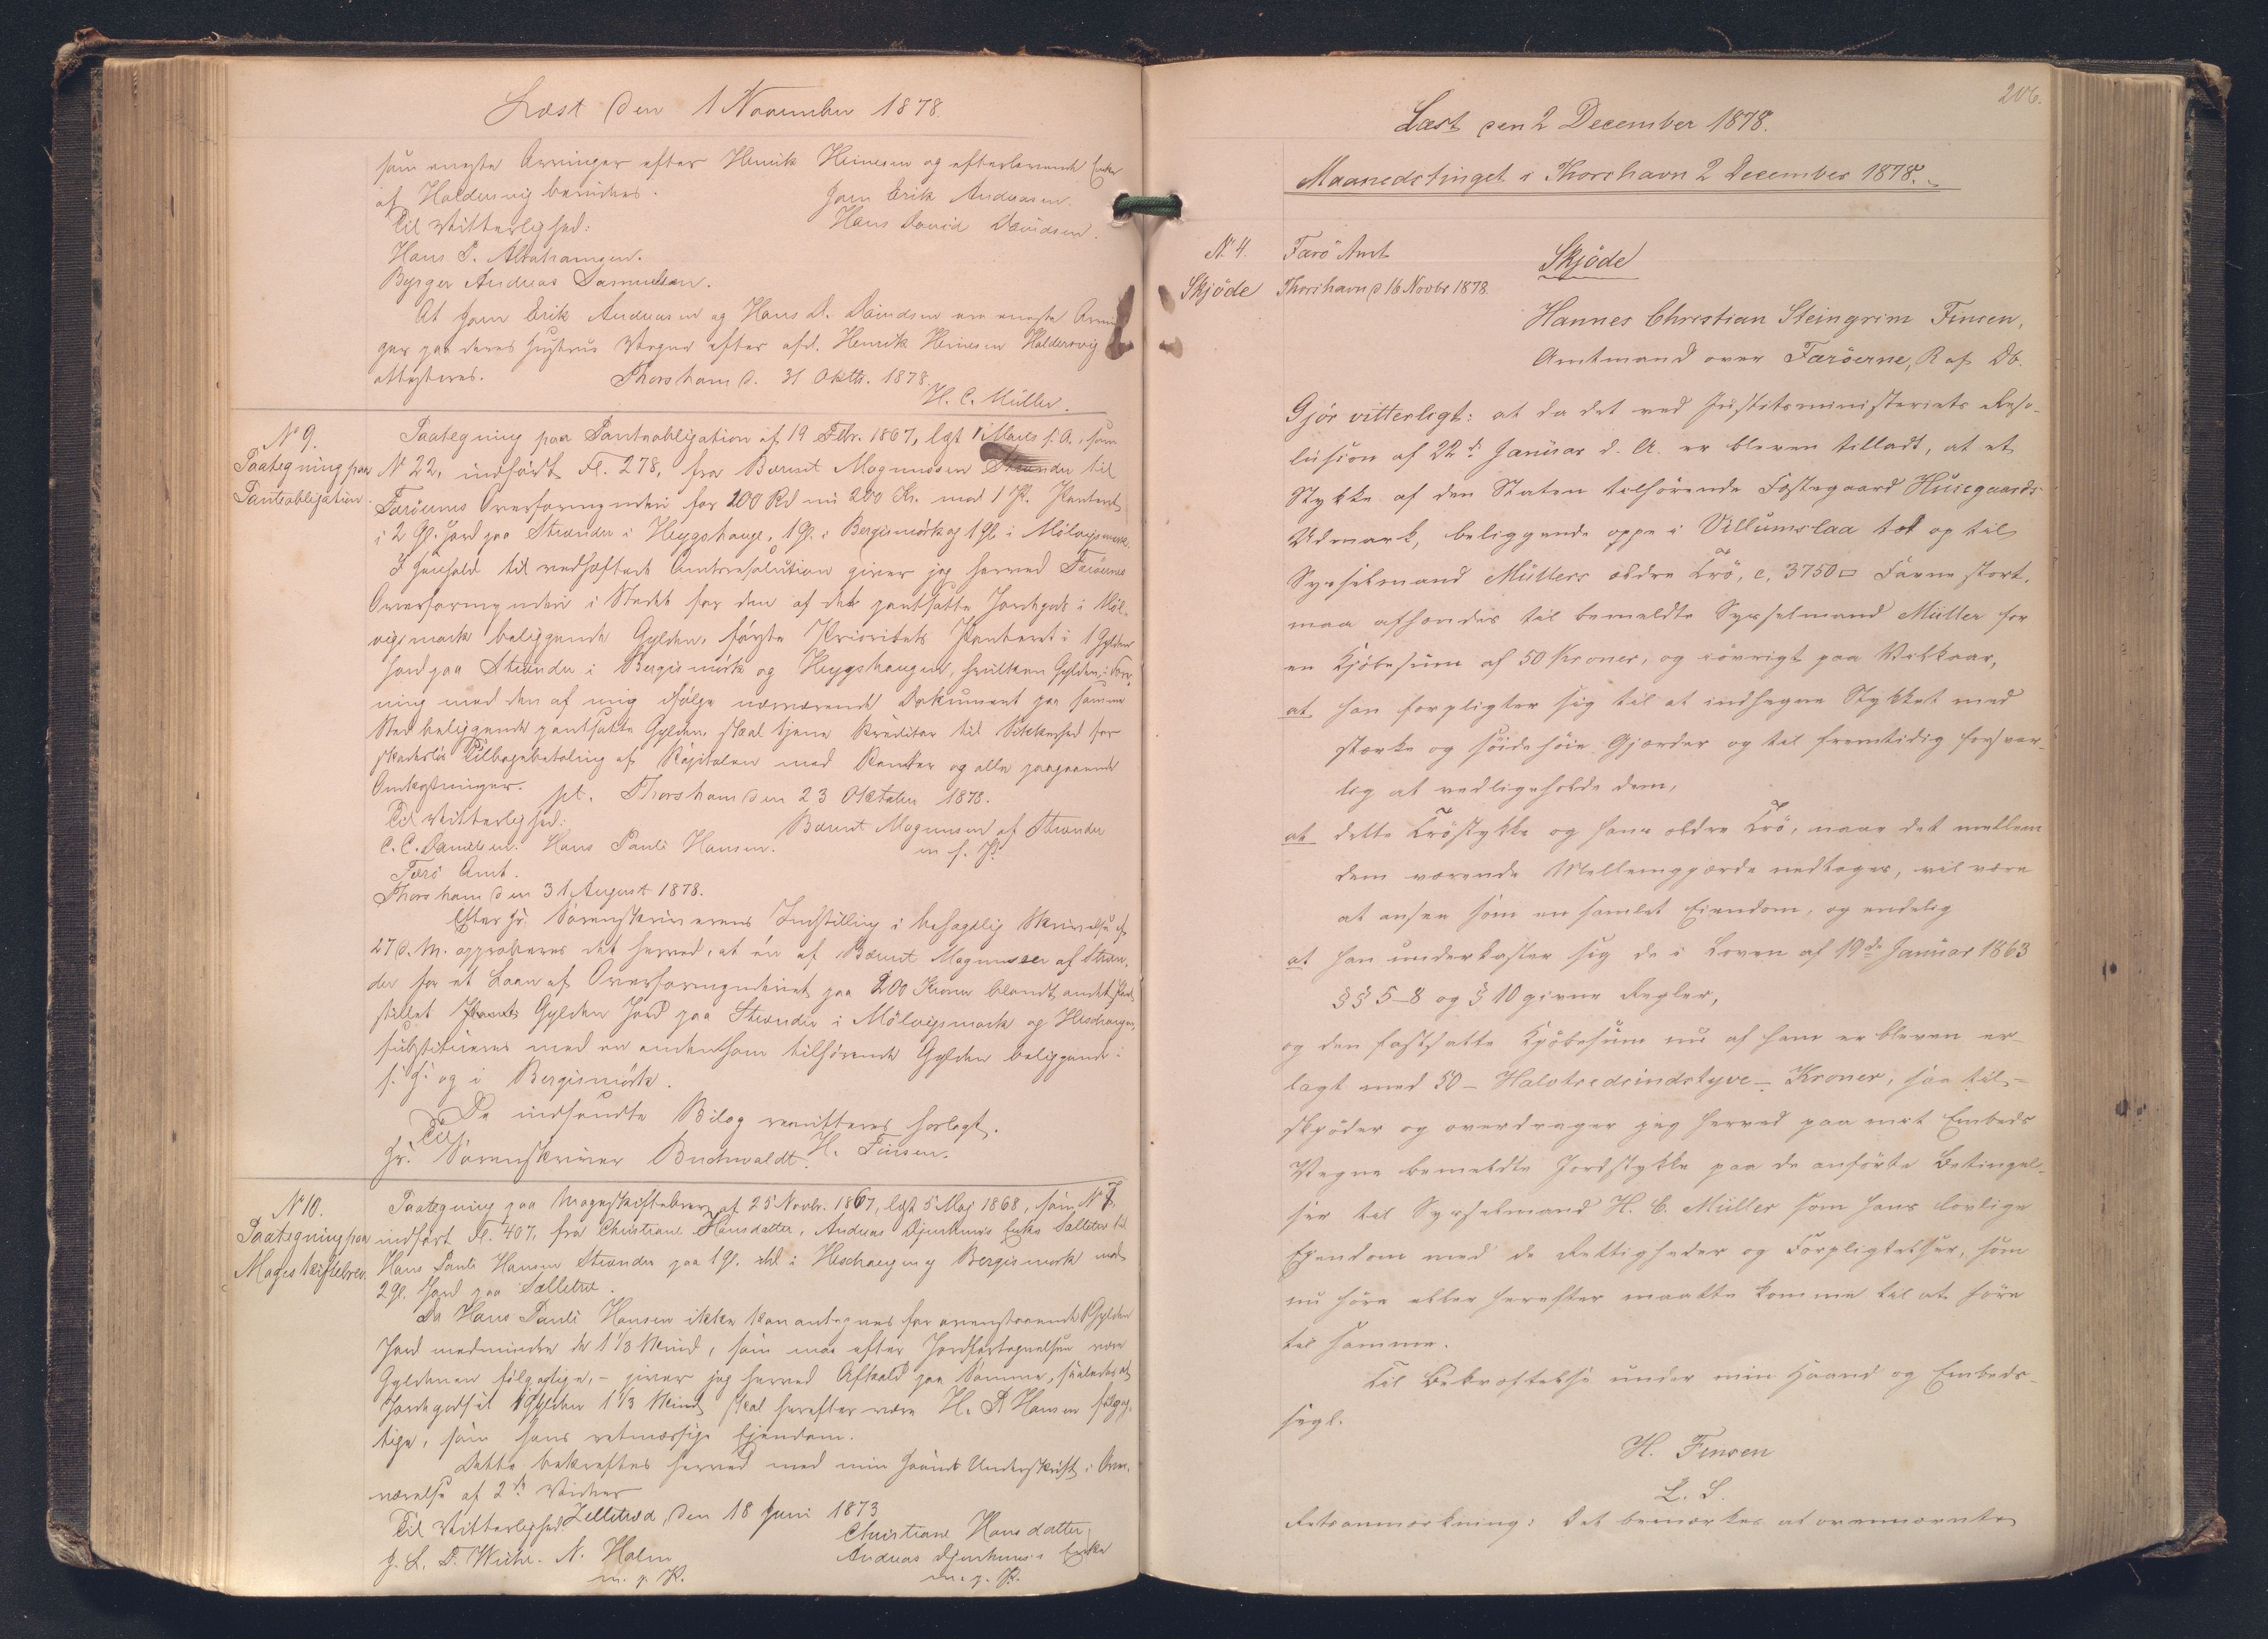 Læst den 1 November 1878.
som eneste Arvinger efter Henrik Heinesen og efterlevende Enke
af Haldersvig berigtes.
Joen Erik Andreasen.
Til Vitterlighed:
Hans David Davidsen.
Hans P. Abrahamsen.
Byrger Andreas Samuelsen.
At Joen Erik Andreasen og Hans D. Davidsen ere eneste Arvin-
ger paa deres Hustrues Vegne efter afd. Henrik Heinesen Haldersvig
attesteres. Thorshavn d. 31 Oktbr. 1878.
H. C. Müller.
No 9.
Paategning paa
Panteobligation.
Paategning paa Panteobligation af 19 Febr. 1867, læst 1 Marts s. A., som
No 22, indført Fl. 278, fra Berint Magnussen Strænder til
Færöernes Overformynderi for 100 Rd nu 200 Kr. mod 1 Pr. Panteret
i 2 Gl. Jord paa Strænder i Heygshauge, 1 Gl. i Bergismörk og 1 Gl. i Mölvigsmark.
I Henhold til vedhæftede Amtsresolution giver jeg herved Færöernes
Overformynderi i Stedet for den af det pantsatte Jordegods i Möl-
vigsmark beliggende Gylden, første Prioritets Panteret i 1 Gylden
Jord paa Strænder i Bergismörk og Heygshaugen, hvilken Gylden i For-
ning med den af mig ifølge nærværende Dokument paa samme
Sted beliggende pantsatte Gylden skal tjene Kreditor til Sikkerhed for
skadesløs Tilbagebetaling af Kapitalen med Renter og alle paagaaende
Omkostninger.
pt. Thorshavn den 23 Oktober 1878.
Til Vitterlighed:
Berint Magnussen af Strænder
C. C. Danielsen. Hans Pauli Hansen.
m. f. P.
Færö Amt.
Thorshavn den 31 August 1878.
Efter Hr. Sorenskriverens Indstilling i behagelig Skrivelse af
27 d. M. approberes det herved, at én af Berint Magnussen af Stræn-
der for et Laan af Overformynderiet paa 200 Kroner blandt andet pant-
stillet Gylden Jord paa Strænder i Mölvigsmark og Heschaugen,
substitueres med en anden ham tilhørende Gylden beliggende i
s. H. og i Bergismörk.
De indsendte Bilag remitteres hoslagt.
H. Finsen.
Til
Hr. Sorenskriver Buchwaldt.
No 10.
Paategning paa
Mageskiftebrev.
Paategning paa Mageskiftebrev af 25 Novbr. 1867, læst 5 Maj 1868, som No 7,
indført Fl. 407, fra Christiane Hansdatter, Andreas Djurhuus's Enke Selletræ til
Hans Pauli Hansen Strænder paa 1 Gl. Jord i Heschaugen og Bergismørk mod
2 Gl. Jord paa Selletræ.
Da Hans Pauli Hansen ikke kan antegnes for ovenstaaende 1 Gylden
Jord medmindre de 1 1/3 Skind, som maa efter Jordfortegnelsen være
Gyldenen følgagtige, - giver jeg herved Afkald paa Samme, saaledes at
Jordegodset 1 Gylden 1 1/3 Skind skal herefter være H. P. Hansen følgag-
tige, som hans retmæssige Ejendom.
Dette bekræftes herved med min Haands Underskrift i Over-
værelse af 2de Vidner
Zelletræd, den 18 Juni 1873
Til Vitterlighed
Christiane Hansdatter
Andreas Djurhuus's Enke
m. p. P.
N. Holm
m. p. P.
206.
Læst den 2 December 1878.
Maanedstinget i Thorshavn 2 December 1878.
No 4.
Skjöde
Færö Amt
Thorshavn d 16 Novbr 1878.
Skjöde
Hannes Christian Steingrim Finsen,
Amtmand over Færöerne, R af Db.
Gjør vitterligt: at da det ved Justitsministeriets Reso-
lusion af 22de Januar d. A. er bleven tilladt, at et
Stykke af den Staten tilhørende Fæstegaard Huusegaards-
Udmark, beliggende oppe i Villumslaa tæt op til
Sysselmand Müllers ældre Trö, c. 3750 □ Favne stort,
maa afhændes til bemeldte Sysselmand Müller for
en Kjöbesum af 50 Kroner, og iövrigt paa Vilkaar,
at han forpligter sig til at indhegne Stykket med
stærke og söide höie Gjærder og til fremtidig forsvar-
lig at vedligeholde dem,
at dette Tröstykke og hans ældre Trö, naar det mellem
dem værende Mellemgjærde nedtages, vil være
at ansee som en samlet Eiendom, og endelig
at han underkaster sig de i Loven af 19de Januar 1863
§§ 5-8 og § 10 givne Regler,
og den fastsatte Kjöbesum nu af ham er bleven er-
lagt med 50 - Halvtredsindstyve - Kroner, saa til-
skjöder og overdrager jeg herved paa mit Embeds
Vegne bemeldte Jordstykke paa de anförte Betingel-
ser til Sysselmand H. C. Müller som hans lovlige
Ejendom med de Rettigheder og Forpligtelser, som
nu höre eller herefter maatte komme til at höre
til samme.
Til Bekræftelse under min Haand og Embeds-
segl.
H. Finsen
L. S.
Retsanmærkning: Det bemærkes at ovennævnte